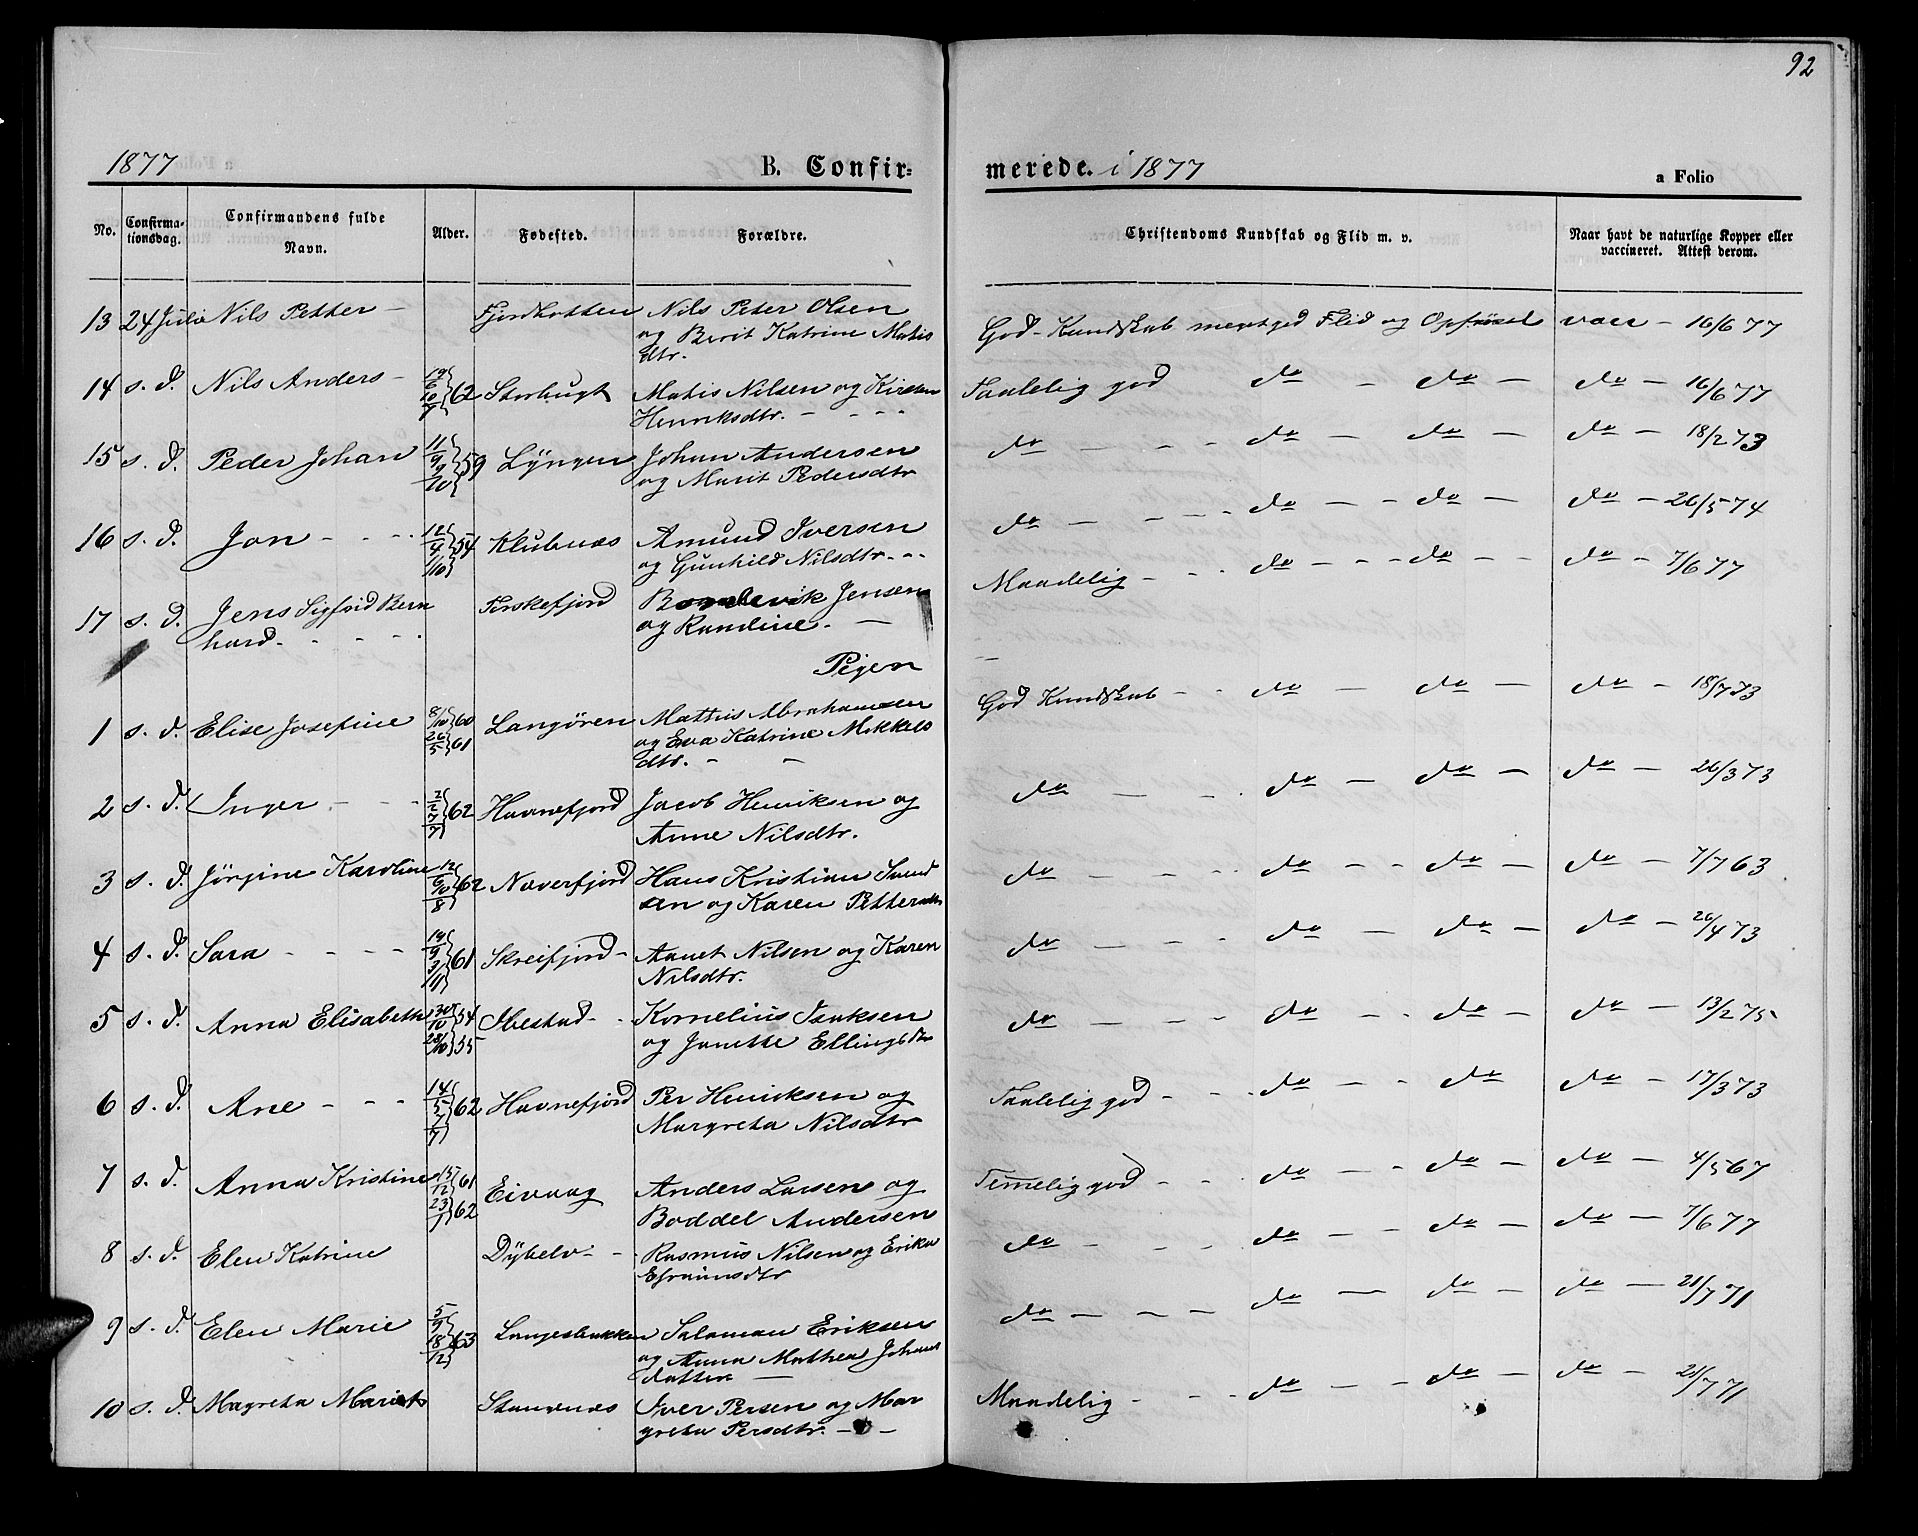 92
1877 B. Confir- merede. i 1877 a Folio
No. Confirma-tionsdag. Confirmandens fulde Navn. Alder. Fødested. Forældre. Christendoms Kundskab og Flid m. v. Naar havt de naturlige Kopper eller vaccineret. Attest derom.
13 24 Juli Nils Petter - Fjordbotten Nils Peter Olsen God Kundskab meget god Flid og Opførsel vacc - 16/6 77
og Berit Katrine Matis
dtr.
14 s. d. Nils Anders - 62 Storbugt Matis Nilsen og Kirsten Taalelig god do - do - do - 16/6 77
Henriksdtr. - - - -
15 s. d. Peder Johan 11/9 9/10 59 Lyngen Johan Andersen do - - - do - do - do - 18/2 73
og Marit Pedersdtr
16 s. d. Jon - - - 12/4 1/10 54 Klubnæs Amund Iversen do - - - - do - - do - do - 26/5 74
og Gunhild Nilsdtr - - -
17 s. d. Jens Sigfrid Bern Torskefjord Jensen Maadelig - - - do - - - do - - do - 7/6 77
hard - - - - og Randine. -
Pigen
1 s. d. Elise Josefine 8/10 60 26/5 61 Langören Mattis Abrahamsen God Kundskab - - do - do - do - 18/7 73
og Eva Katrine Mikkels
dtr. - -
2 s. d. Inger - - - 2/2 7/7 62 Havnefjord Jacob Henriksen og do - - - do - do - do - 26/3 73
Anne Nilsdtr.
3 s. d. Jörgine Karoline 12/6 10/8 62 Næverfjord Hans Kristian Svend do - - - do - - do - do - 7/7 63
sen og Karen Pettersdtr
4 s. d. Sara - - - - 19/9 3/11 61 Skreifjord - Nilsen og Karen do - - - - do - do - do - 26/4 73
Nilsdtr.
5 s. d. Anna Elisabeth 30/10 54 28/10 55 Ibestad - - Kornelius Isaksen do - - - - do - - do - do - 13/2 75
og Janette Ellingsdtr
6 s. d. Ane - - - 14/5 7/7 62 Havnefjord Per Henriksen og Taalelig god - - - do - - do do - 17/3 73
Margreta Nilsdtr
7 s. d. Anna Kristine 15/12 61 23/1 62 Eivaag Anders Larsen og Temmelig god - - do - - do - do - 4/5 67
Boddel Andersen
8 s. d. Elen Katrine Dybelv - - Rasmus Nilsen og Erika do - - - - do - - do - do - 7/6 77
Efraimsdtr
9 s. d. Elen Marie 5/9 18/12 63 Salamon Eriksen do - - - do - do - do - 21/7 71
og Anna Mathea Johans
datter -
10 s. d. Magreta Stangenæs Iver Persen og Mar Maadelig - - - do - - do - do - 21/7 71
greta Persdtr. - - -